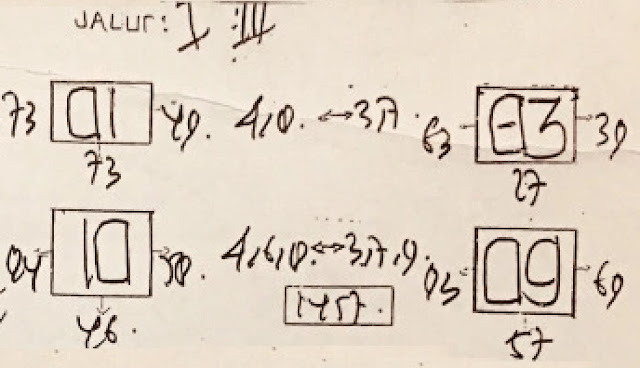 JALUR: I III
73 01 49. 4,0. ↔ 3,7. 63 83 39
73 27
04 10 50. 4,6,0. ↔ 3,7,9. 05 09 69
1457.
46. 57